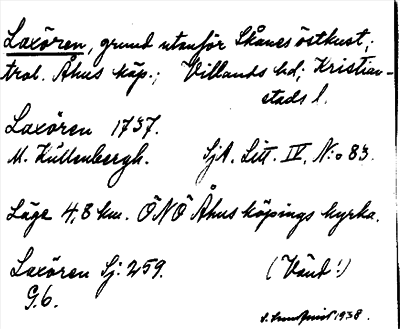 Laxören, grund utanför Skånes östkust;
trol. Åhus köp.; Villands hd; Kristian-
stads l.
Laxören 1737.
M. Kullenbergh. SjA. Litt. IV, N:o 83.
Läge 4,8 km. ÖNÖ Åhus köpings kyrka.
Laxören Sj: 259. (Vänd!)
G.b. 1938.